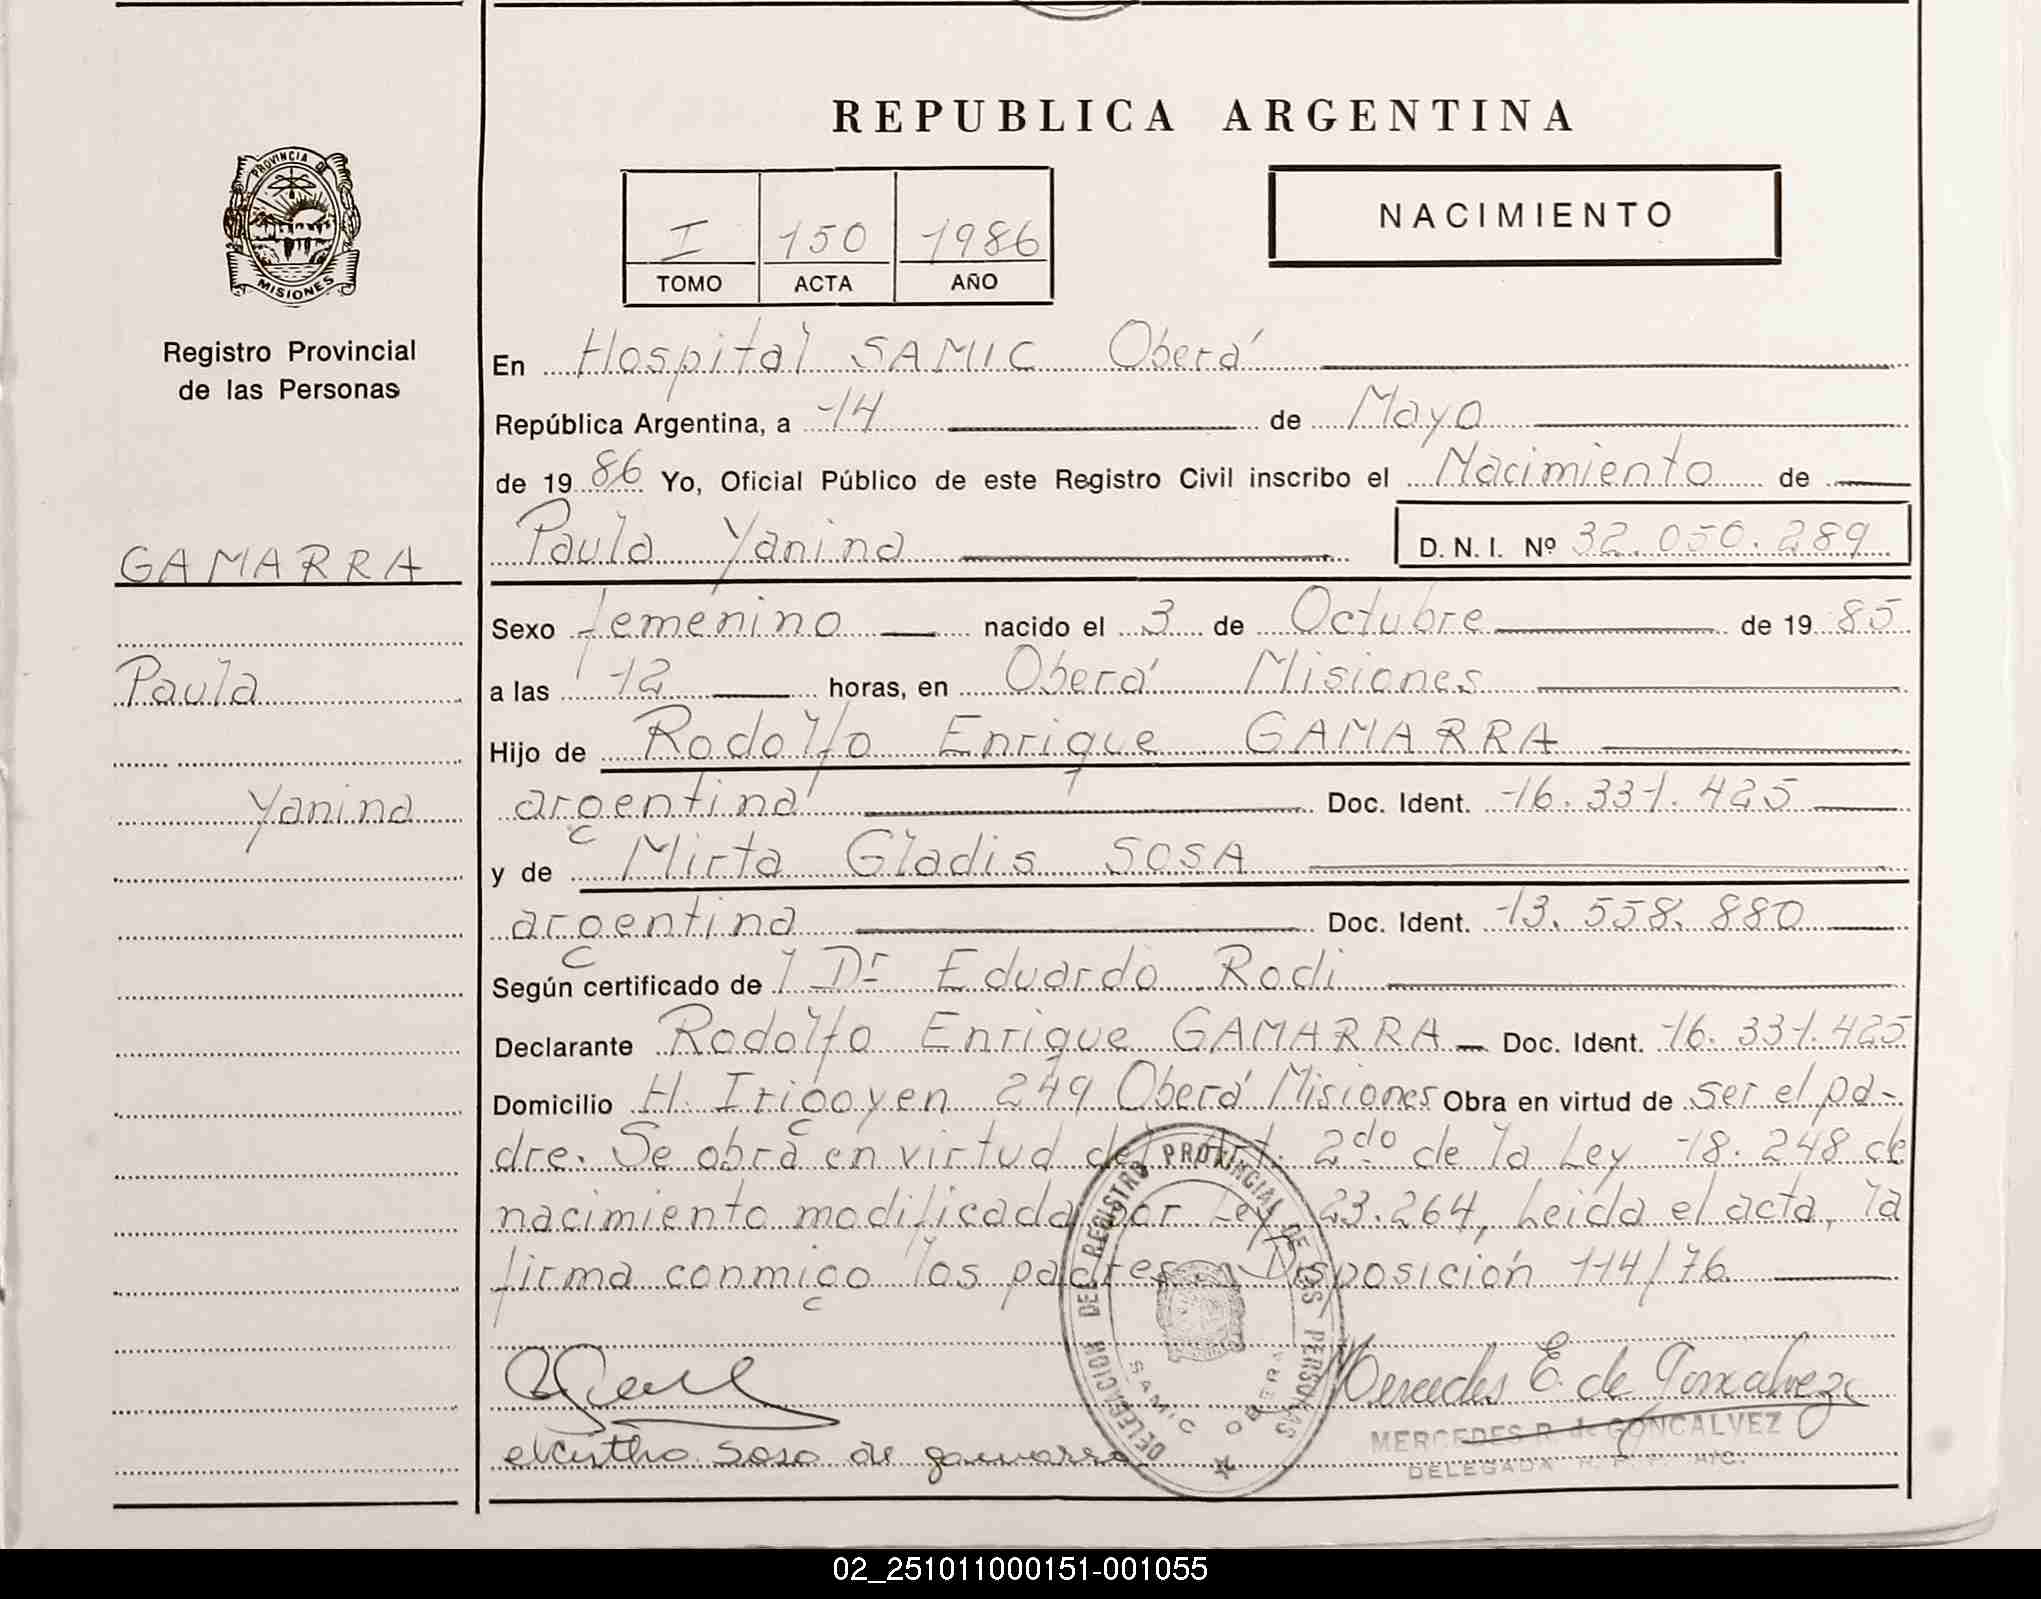 REPUBLICA ARGENTINA
PROVINCIA DE
MISIONES
Registro Provincial
de las Personas
I 150 1986
TOMO ACTA AÑO
NACIMIENTO
En Hospital SAMIC Oberá
República Argentina, a 14 de Mayo
de 19 86 Yo, Oficial Público de este Registro Civil inscribo el Nacimiento de
GAMARRA
Paula Yanina D. N. I. Nº 32.050.289
Sexo femenino nacido el 3 de Octubre de 19 85
Paula
a las 12 horas, en Oberá Misiones
Hijo de Rodolfo Enrique GAMARRA
Yanina
argentina Doc. Ident. 16.331.425
y de Mirta Gladis SOSA
argentina Doc. Ident. 13.558.880
Según certificado de l Dr Eduardo Rodi
Declarante Rodolfo Enrique GAMARRA Doc. Ident. 16.331.425
Domicilio H. Irigoyen 249 Oberá Misiones Obra en virtud de ser el pa-
dre. Se obra en virtud del Art. 2do de la Ley 18.248 de
nacimiento modificada por Ley 23.264, Leida el acta, la
firma conmigo los padres. Disposición 114/76
DELEGACION DEL REGISTRO PROVINCIAL DE LAS PERSONAS
SAMIC OBERA
Mercedes E. de Goncalvez
sosa de gamarra
MERCEDES R. de GONCALVEZ
DELEGADA
02_251011000151-001055